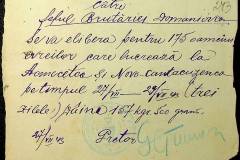 Către
Șeful Brutăriei Domaniovca
Se va elibera pentru 175 oameni
evreilor care lucrează la
Acmecetca Și Novo Cantacuzenca
pe timpul 27/VII – 29/VII 43 trei
zilele) făină 157 kgr. 500 gram.
27/VII 43 Pretor